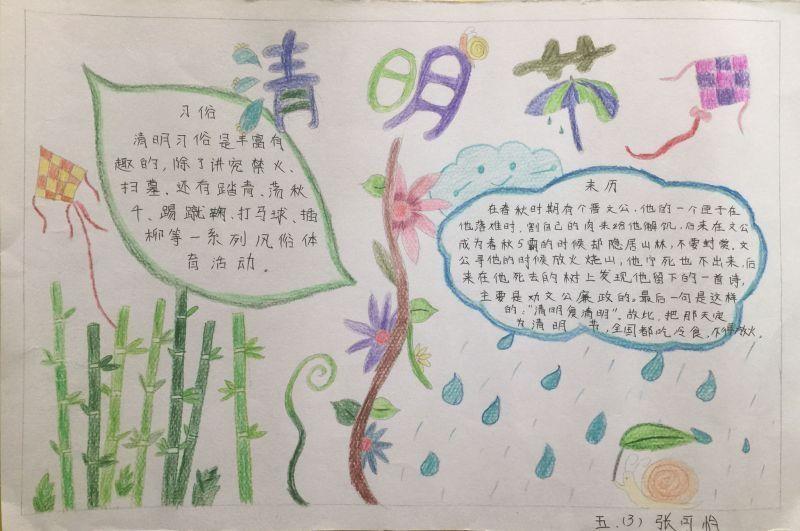 清明节
习俗
清明习俗是丰富有
趣的,除了讲究禁火、
扫墓,还有踏青、荡秋
千、踢蹴鞠、打马球、插
柳等一系列风俗体
育活动。
来历
在春秋时期有个晋文公,他的一个臣子在
他落难时,割自己的肉来给他解饥,后来在文公
成为春秋5霸的时候却隐居山林,不要封赏。文
公寻他的时候放火烧山,他宁死也不出来,后
来在他死去的树上发现他留下的一首诗,
主要是劝文公廉政的。最后一句是这样
的:“清明复清明”。故此,把那天定
为清明节,全国都吃冷食,不得放火。
五.(3) 张可怡